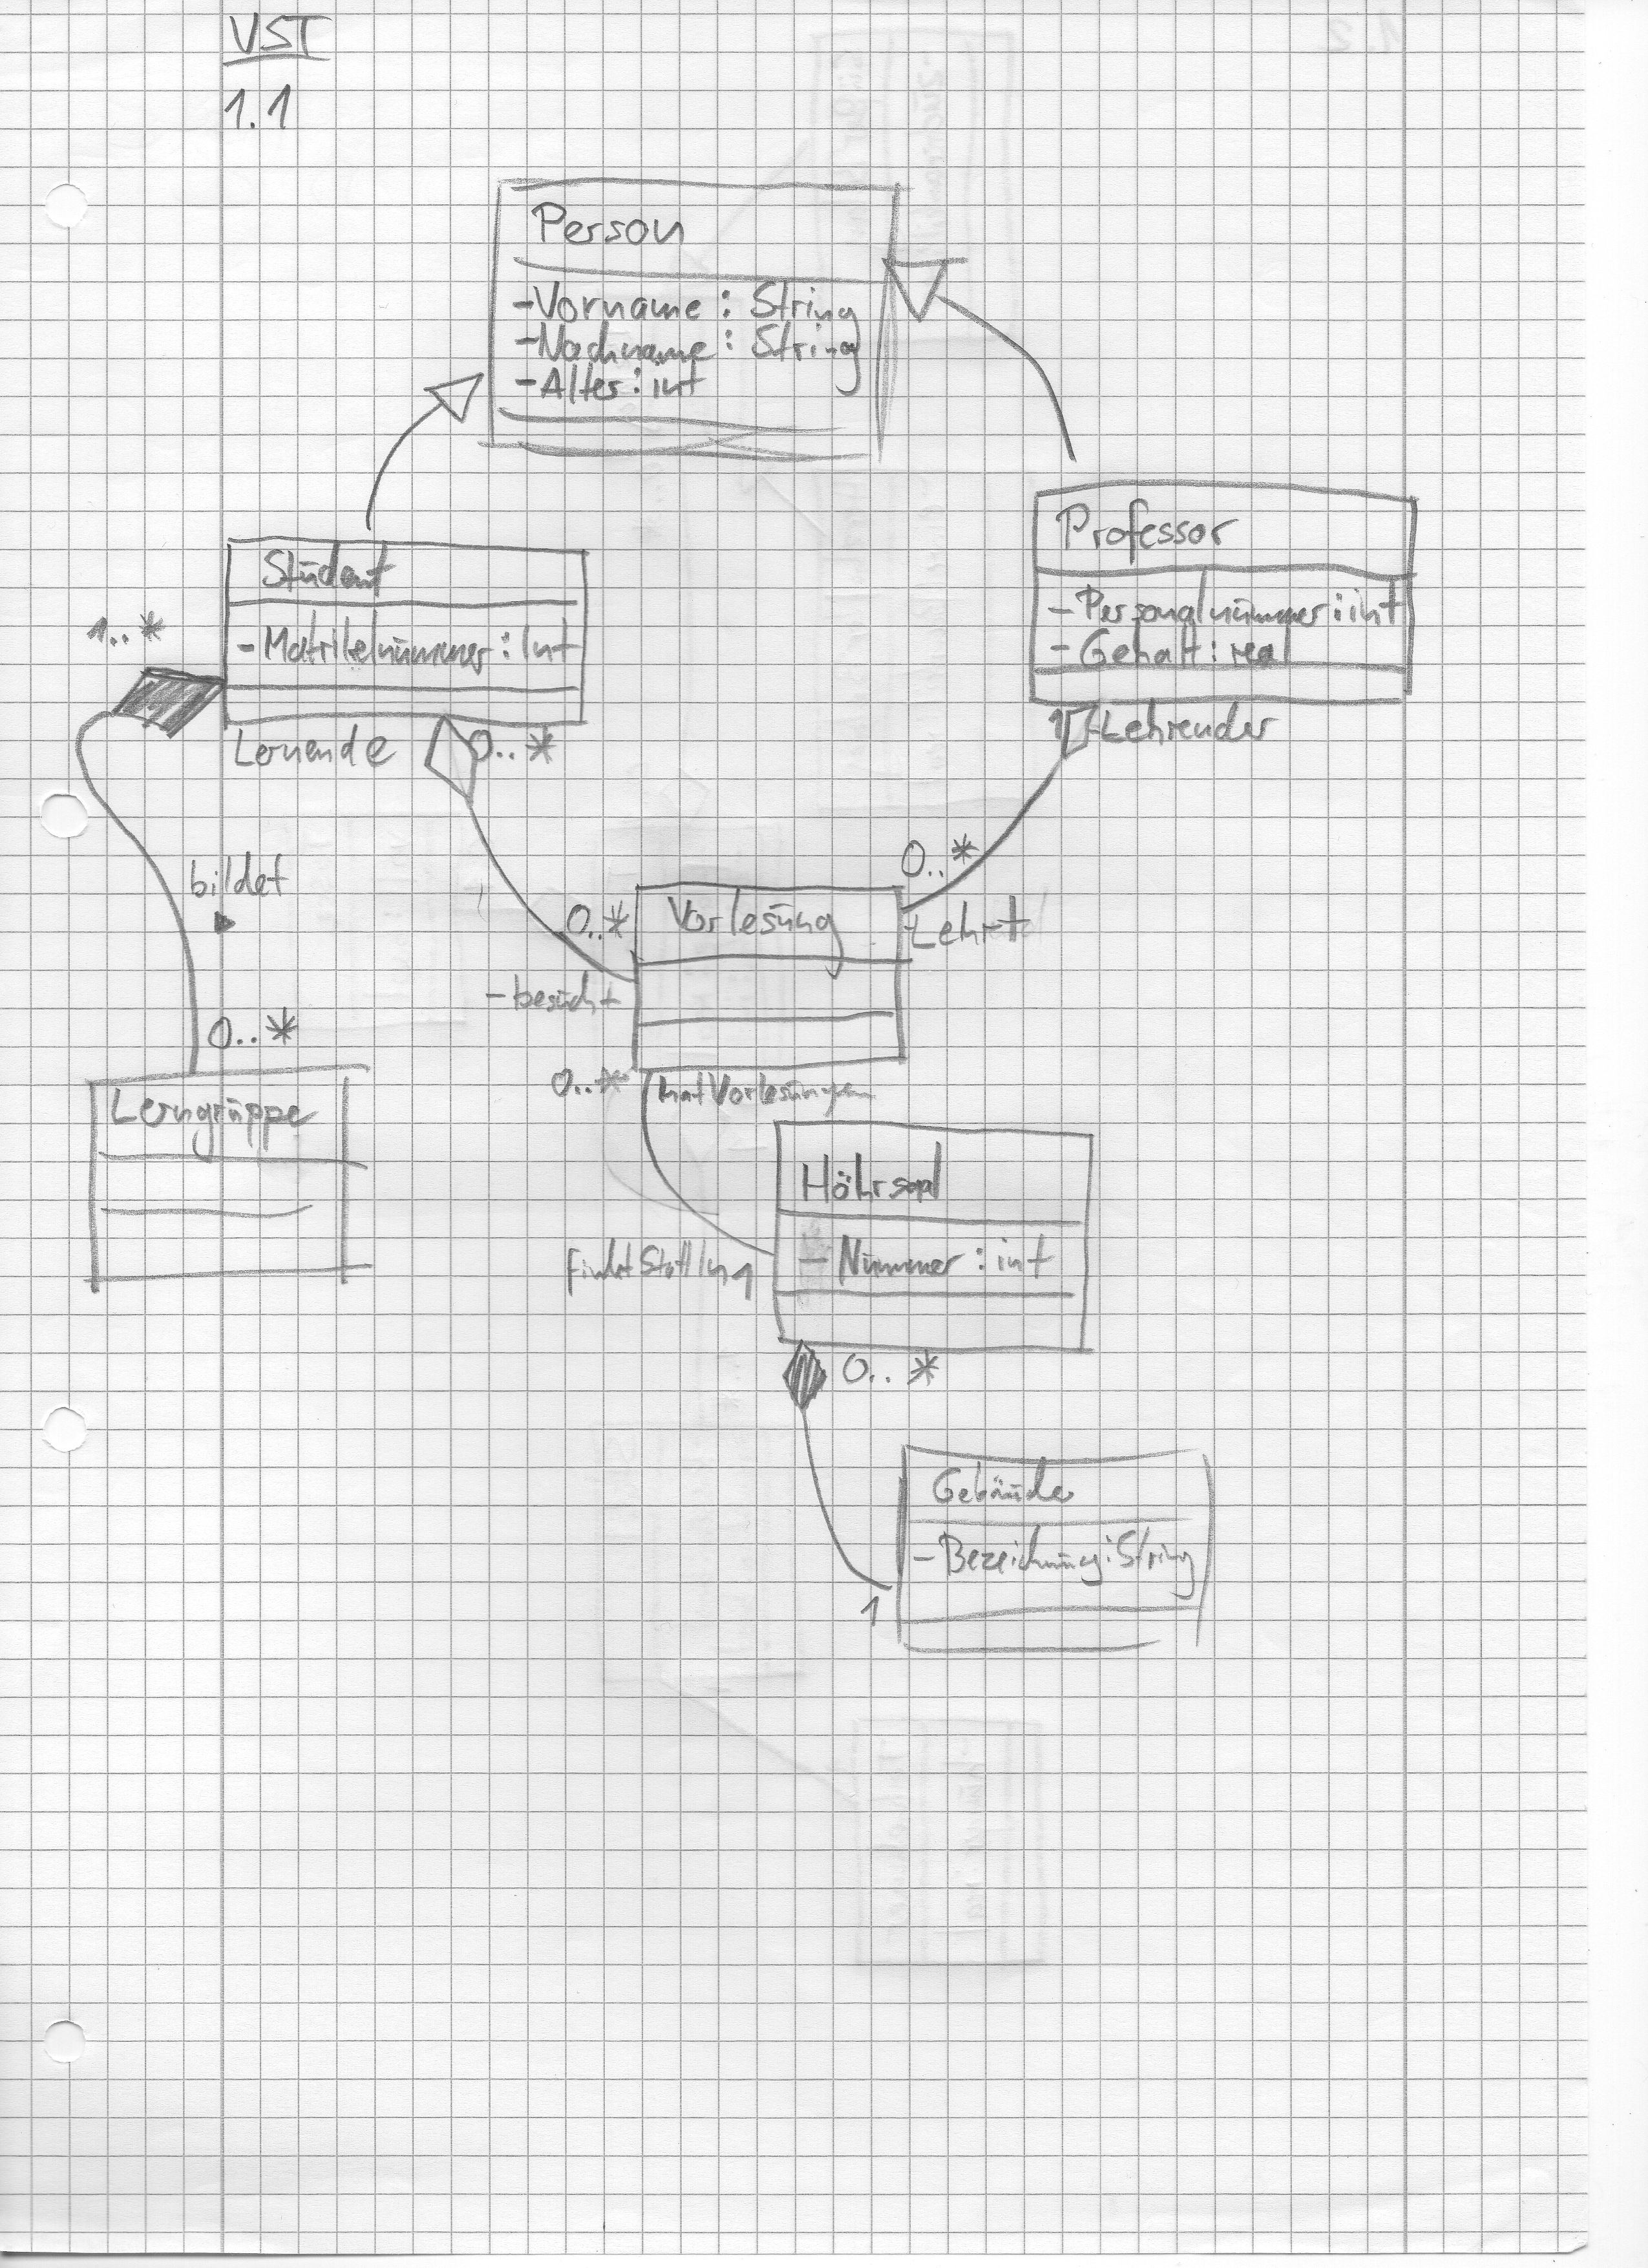 VST
1.1
Person
-Vorname : String
-Nachname : String
-Alter : int
Student
-Matrikelnummer : Int
1..*
Lernende
0..*
Professor
- Personalnummer : int
- Gehalt : real
1
-Lehrender
bildet
0..*
-Lehrt
0..*
Vorlesung
-besucht
0..*
Lerngruppe
0..*
hatVorlesungen
Höhrsaal
- Nummer : int
findetStattIn
1
0..*
Gebäude
- Bezeichnung : String
1